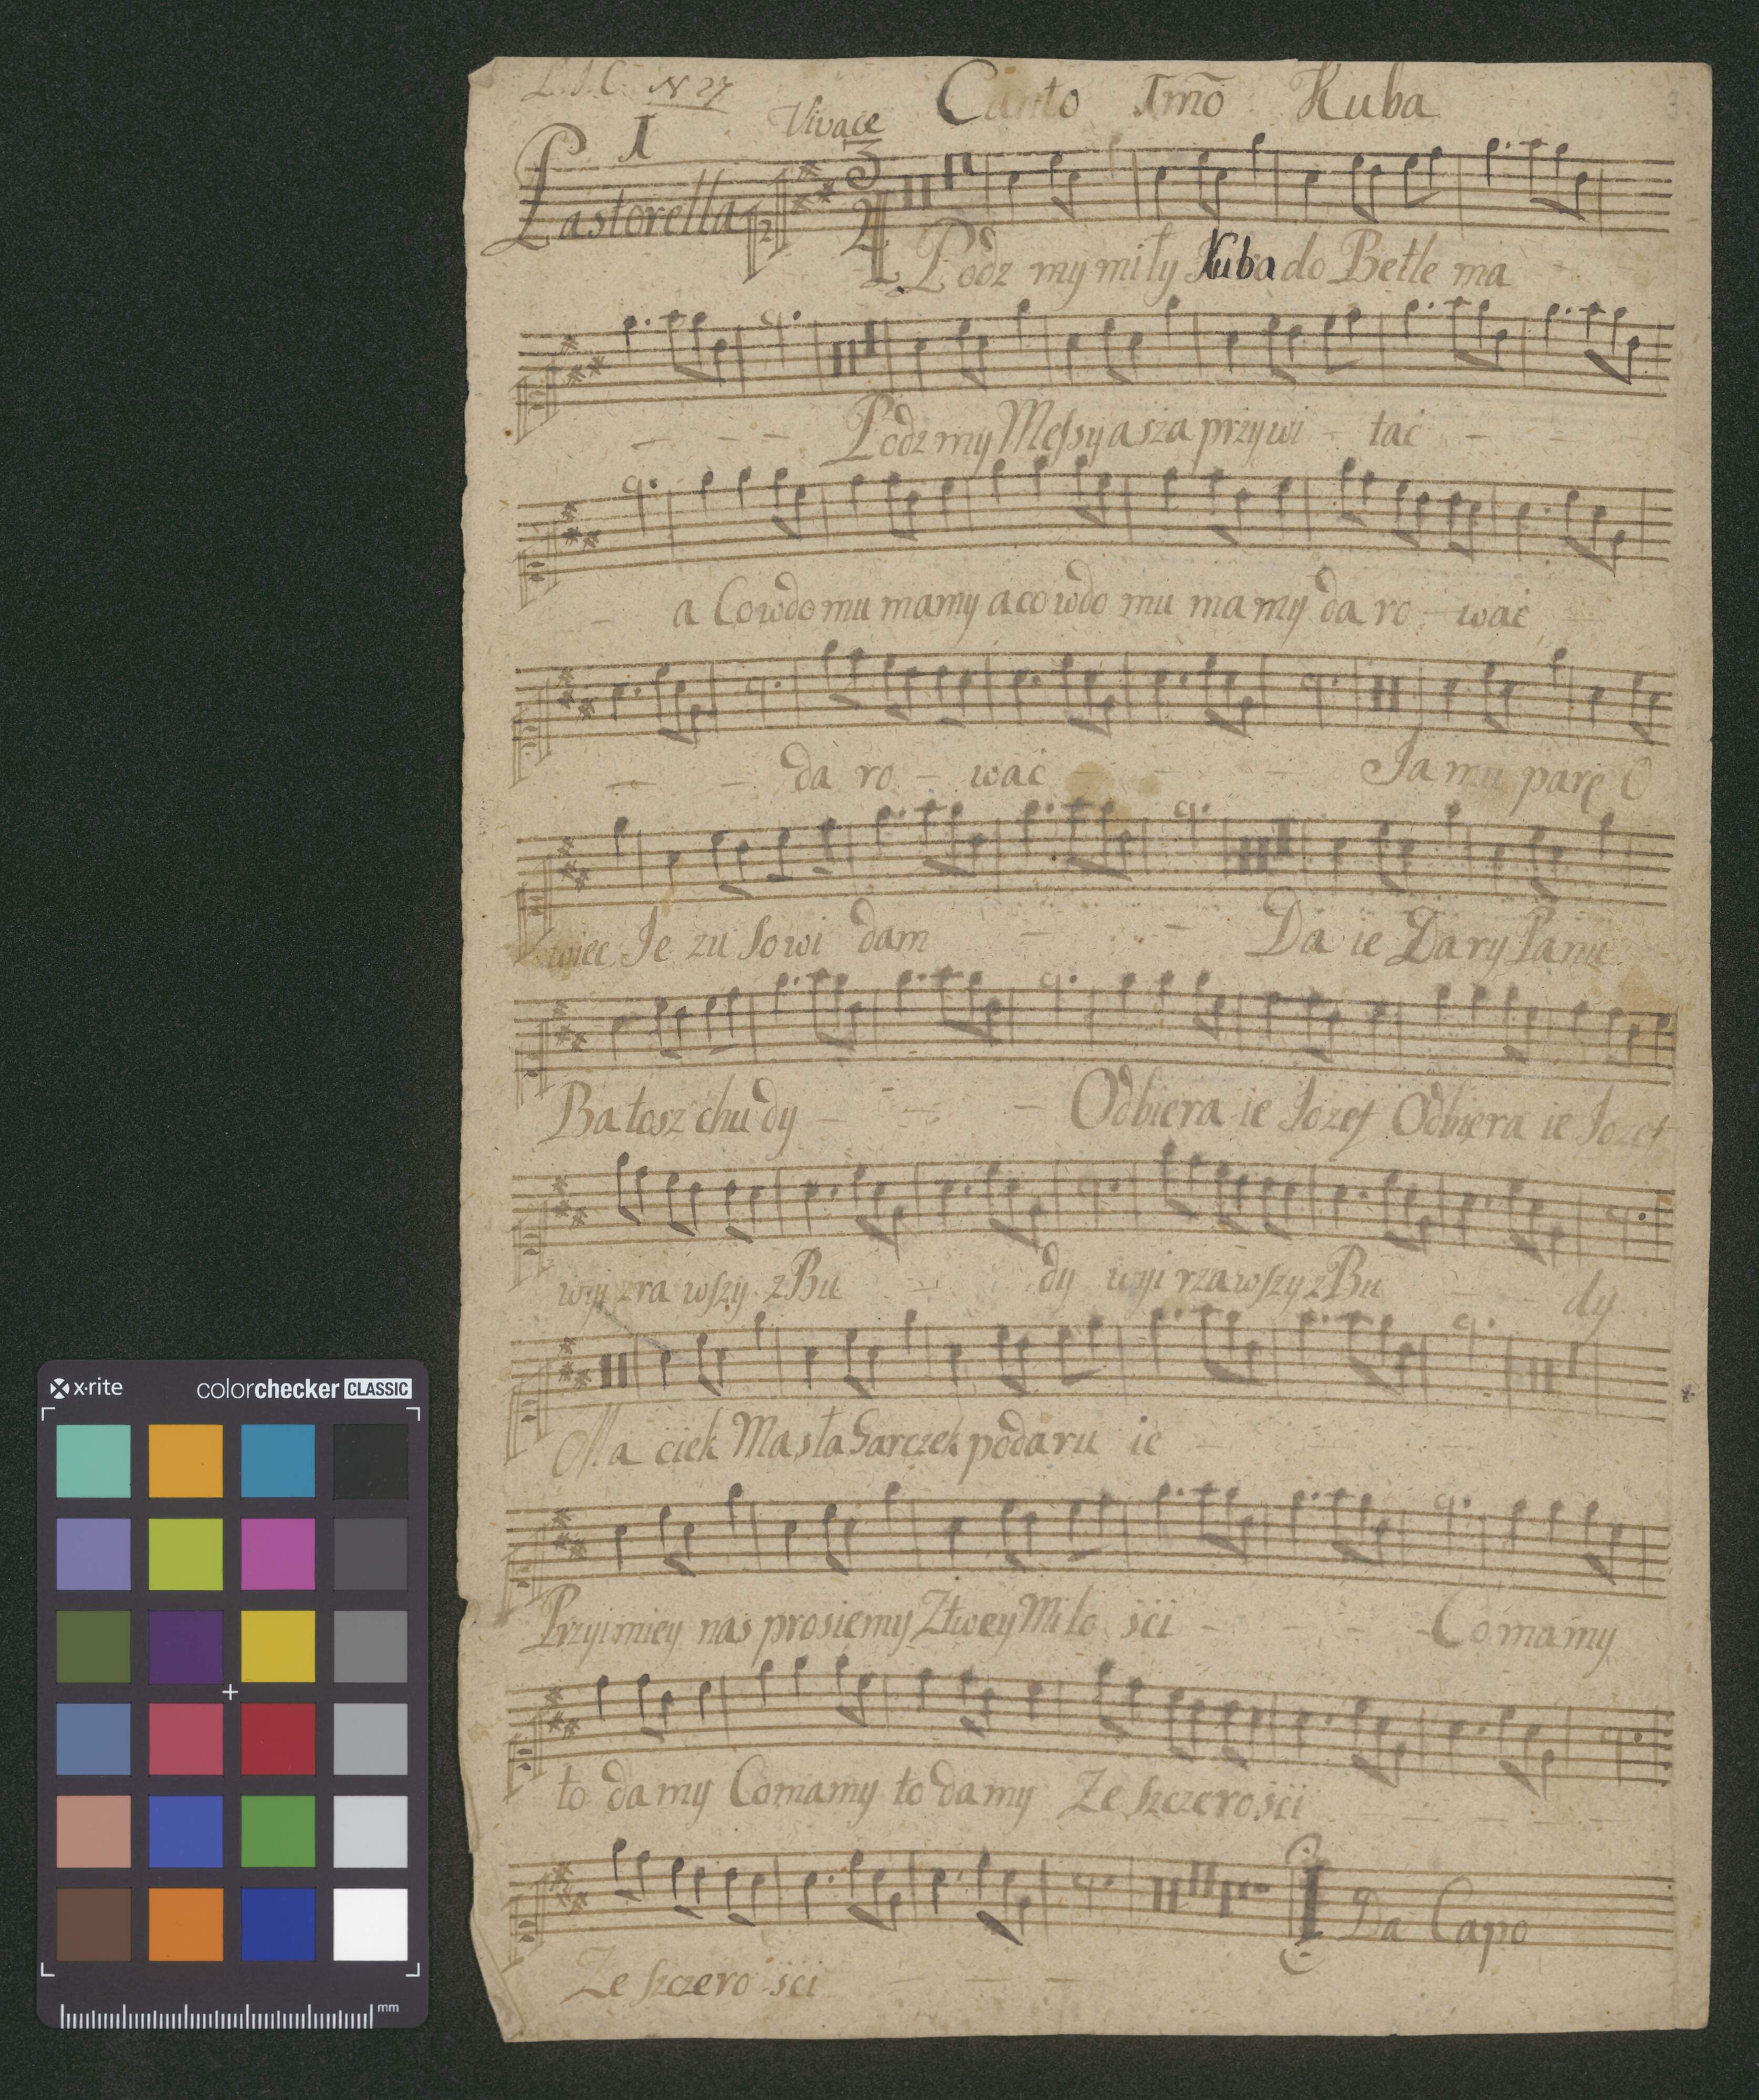 L.J.C. N 27
Canto Imo Kuba
I Vivace
Pastorella 3/4
Podz my miły Kuba do Betle ma
Podz my Messyasza przywi - tać
a Co w domu mamy a co w domu mamy da ro - wać
da ro - wać Ja mu parę O
wiec Je zu sowi dam Da ie Dary Panu
Batosz chudy Odbiera ie Jozef Odbiera ie Jozef
wyi zra wszy z Bu dy wyi rza wszy z Bu dy
Ma ciek Masła Garczek podaru ie
Przyi miey nas prosiemy Z twey Miło ści Co mamy
to damy Co mamy to damy Ze szczerości
Da Capo
Ze szczero ści
x-rite colorchecker CLASSIC
mm